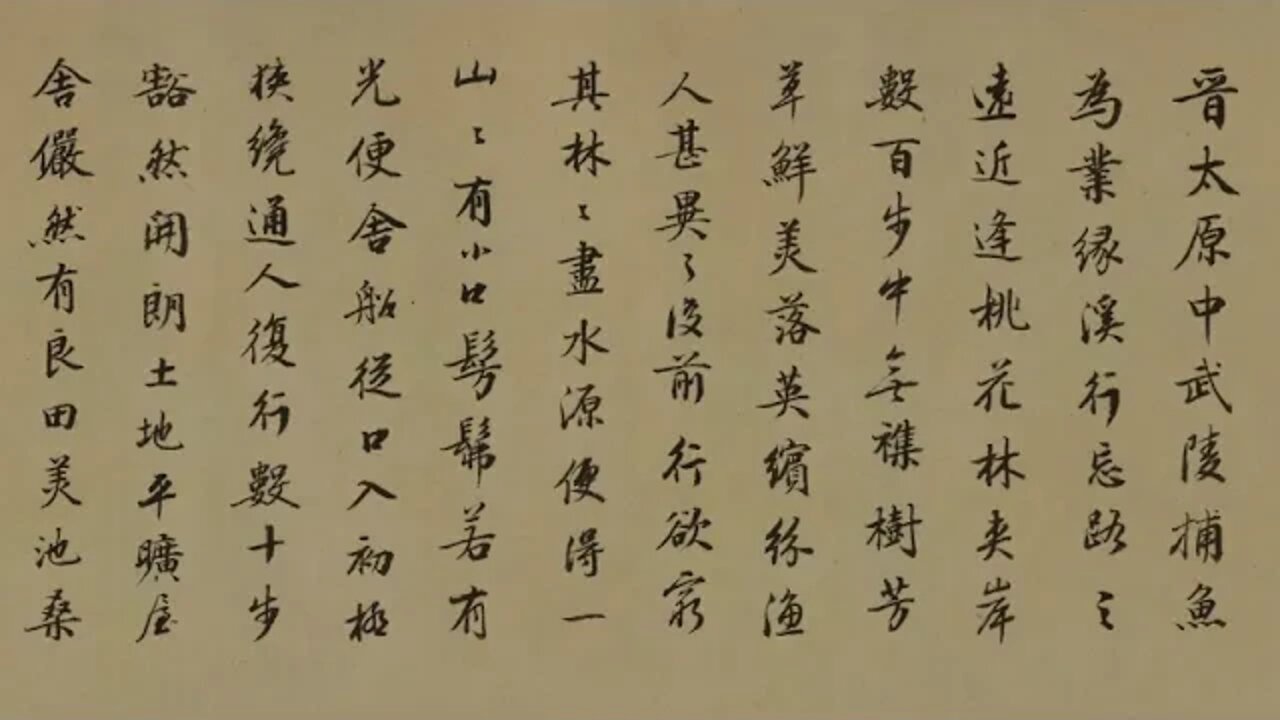 晉太原中武陵捕魚
為業緣溪行忘路之
遠近逢桃花林夾岸
數百步中無襍樹芳
草鮮美落英繽紛漁
人甚異之復前行欲窮
其林林盡水源便得一
山山有小口髣髴若有
光便舍船從口入初極
狹纔通人復行數十步
豁然開朗土地平曠屋
舍儼然有良田美池桑